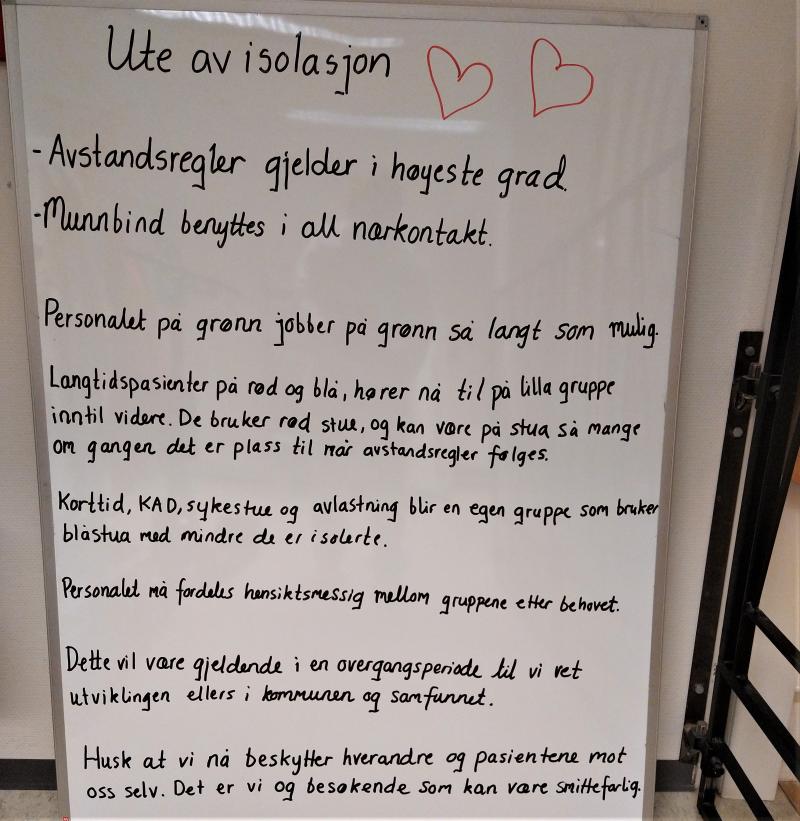 Ute av isolasjon
- Avstandsregler gjelder i høyeste grad.
- Munnbind benyttes i all nærkontakt.
Personalet på grønn jobber på grønn så langt som mulig.
Langtidspasienter på rød og blå, hører nå til på lilla gruppe
inntil videre. De bruker rød stue, og kan være på stua så mange
om gangen det er plass til når avstandsregler følges.
Korttid, KAD, sykestue og avlastning blir en egen gruppe som bruker
blåstua med mindre de er isolerte.
Personalet må fordeles hensiktsmessig mellom gruppene etter behovet.
Dette vil være gjeldende i en overgangsperiode til vi vet
utviklingen ellers i kommunen og samfunnet.
Husk at vi nå beskytter hverandre og pasientene mot
oss selv. Det er vi og besøkende som kan være smittefarlig.